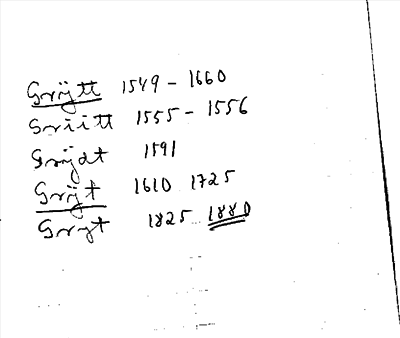 Srijtt 1549 - 1660
Sriitt 1555 - 1556
Srijdt 1591
Srijt 1610 1725
Sryt 1825 1880